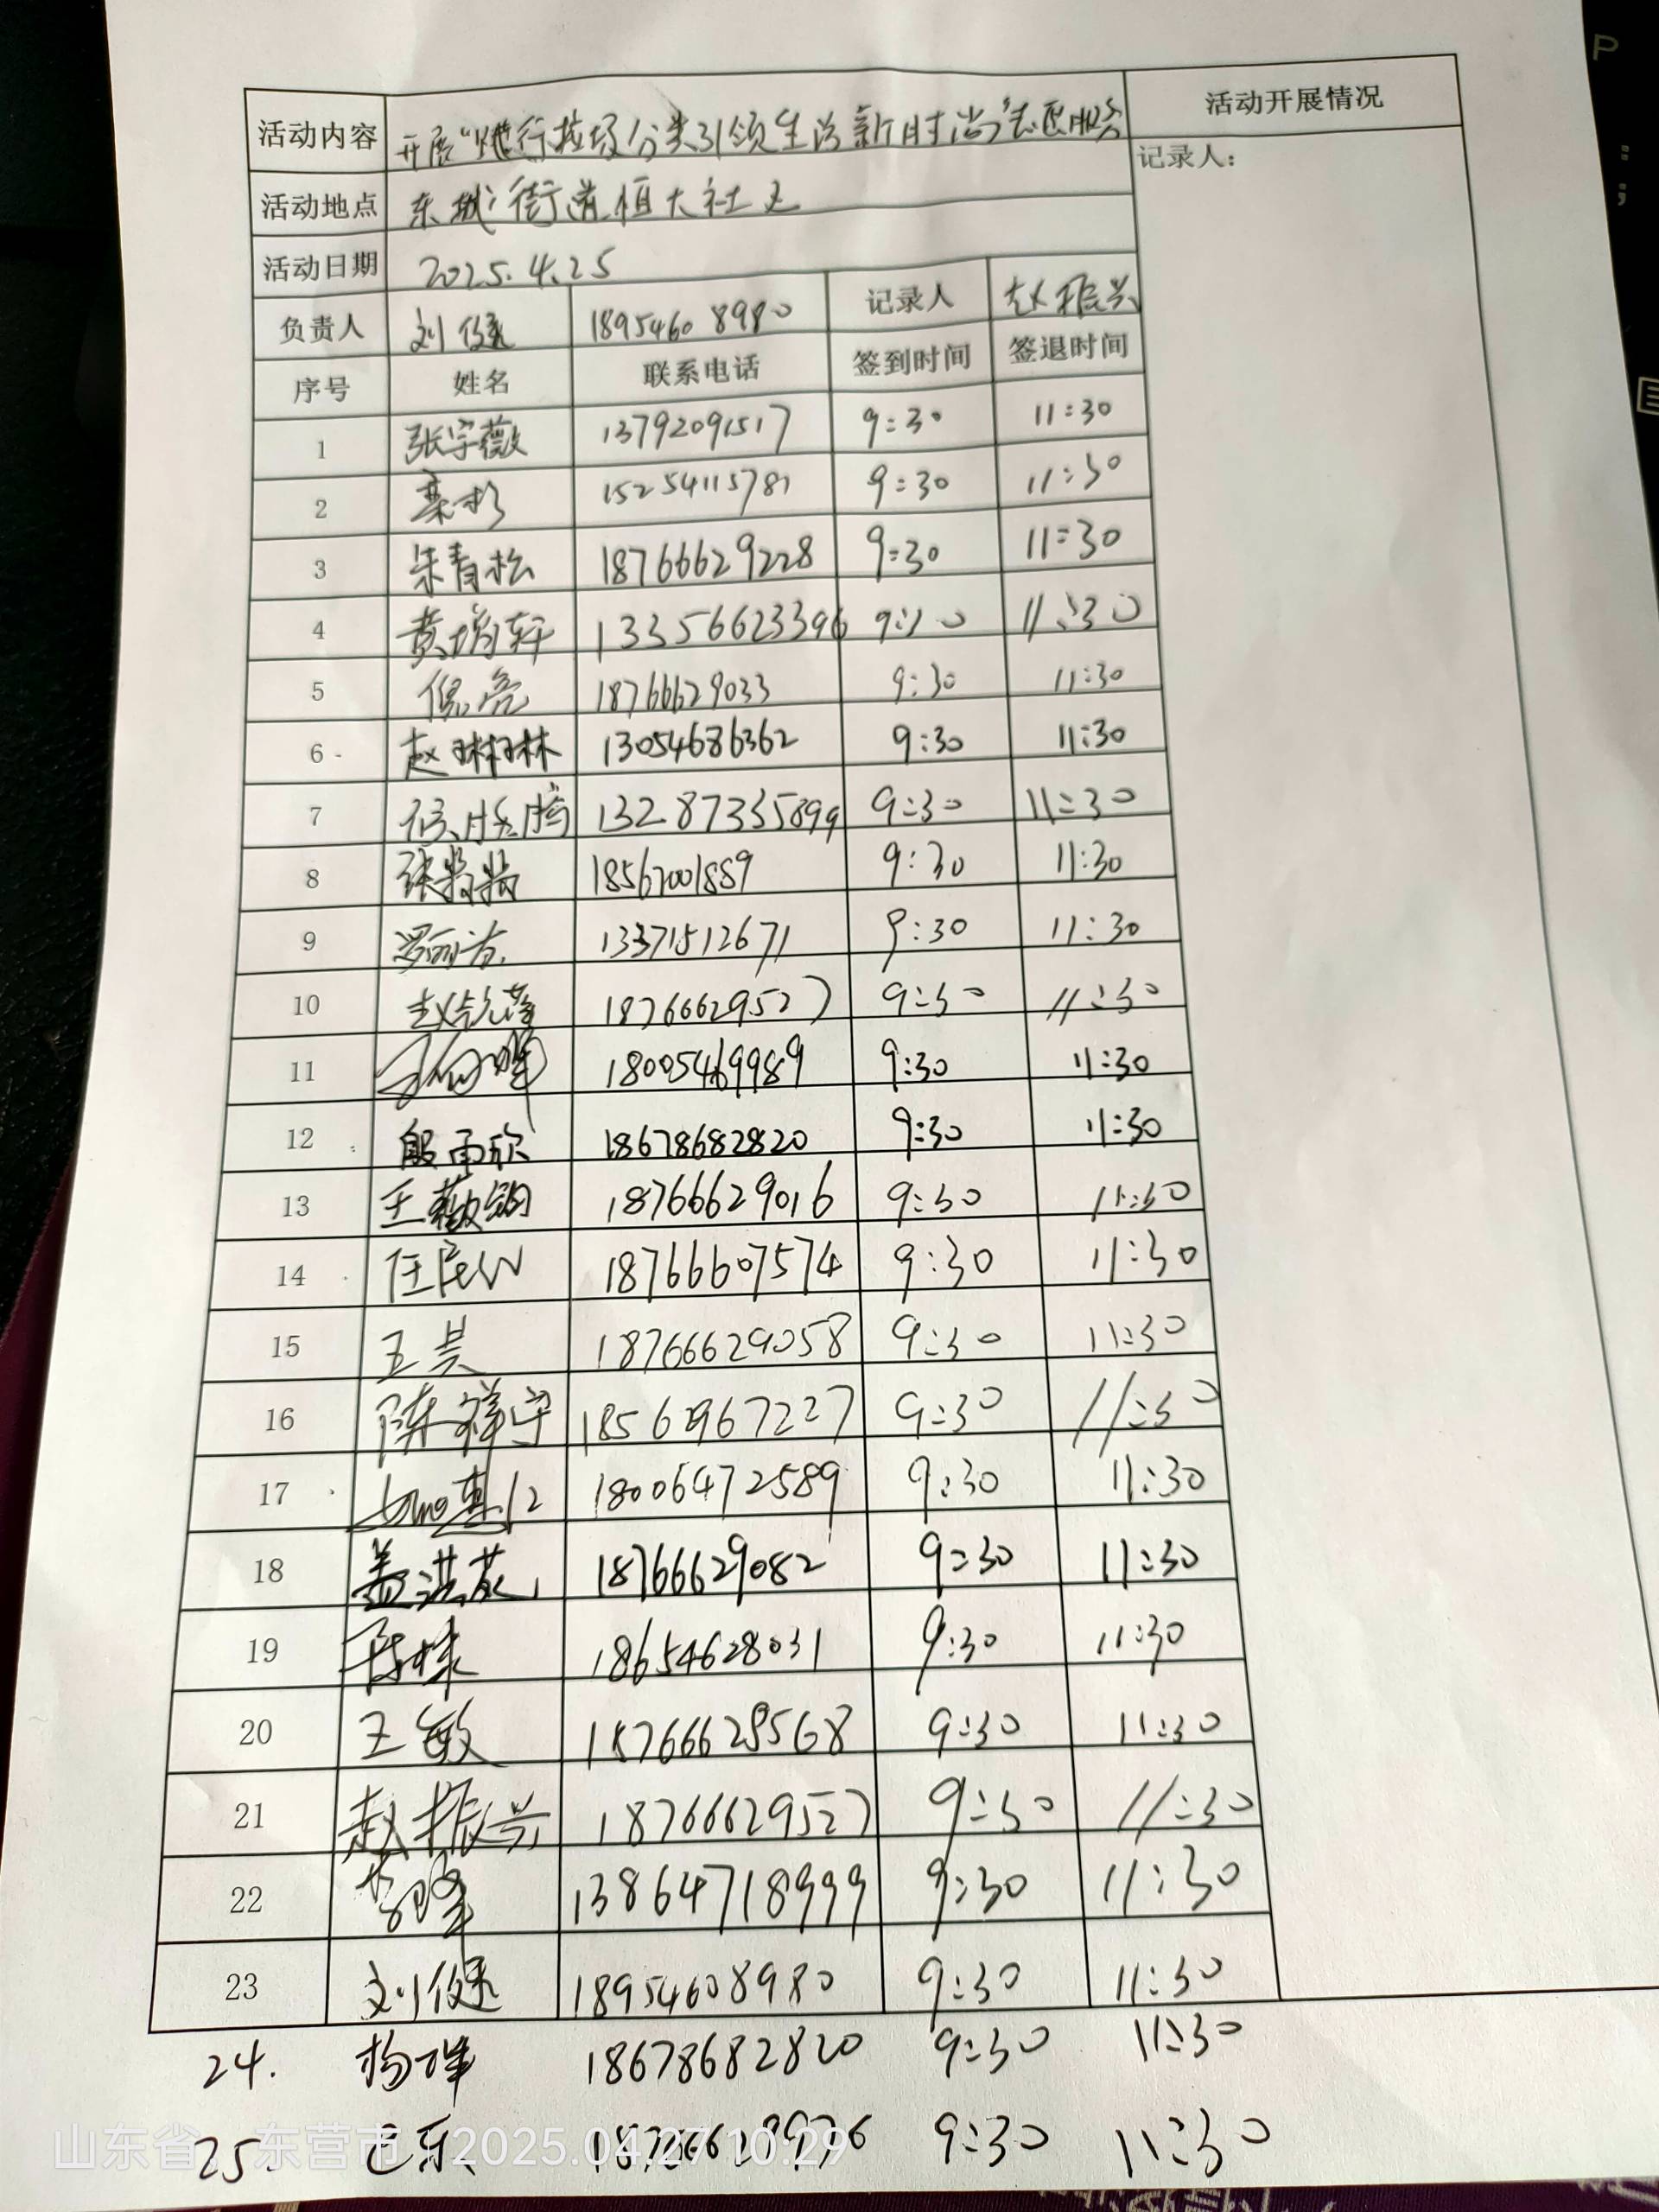 活动内容 开展"践行垃圾分类引领生活新时尚"志愿服务 活动开展情况
活动地点 东城街道恒大社区 记录人：
活动日期 2025.4.25
负责人 刘健 18954608980 记录人 赵振兴
序号 姓名 联系电话 签到时间 签退时间
1 张宇薇 13792091517 9:30 11:30
2 栾杉 15254115781 9:30 11:30
3 朱青松 18766629228 9:30 11:30
4 黄瑞轩 13356623396 9:30 11:30
5 倪亮 18766629033 9:30 11:30
6 赵琳琳 13054686362 9:30 11:30
7 13287335899 9:30 11:30
8 18567001889 9:30 11:30
9 罗丽芳 13371512671 9:30 11:30
10 18766629527 9:30 11:30
11 18005469989 9:30 11:30
12 殷雨欣 18678682820 9:30 11:30
13 王 18766629016 9:30 11:30
14 18766607574 9:30 11:30
15 王昊 18766629058 9:30 11:30
16 陈祥宇 18562967227 9:30 11:30
17 18006472589 9:30 11:30
18 盖洪 18766629082 9:30 11:30
19 18654628031 9:30 11:30
20 王敏 18766629568 9:30 11:30
21 赵振兴 18766629527 9:30 11:30
22 13864718999 9:30 11:30
23 刘健 18954608980 9:30 11:30
24. 杨峰 18678682820 9:30 11:30
25. 9:30 11:30
山东省，东营市 2025.04.27 10:29